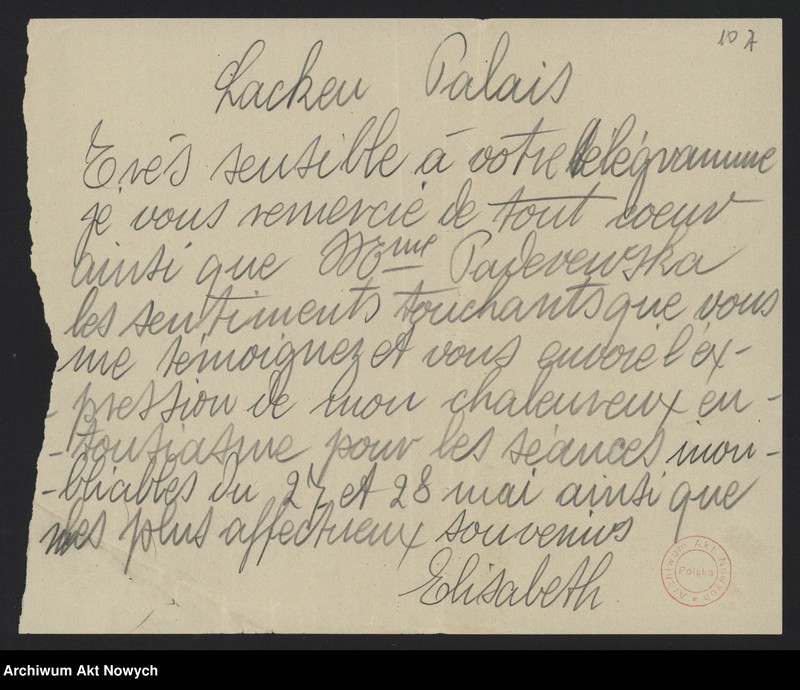 10 A
Lacken Palais
Très sensible à votre télégramme
je vous remercie de tout coeur
ainsi que Mme Paderewska
les sentiments touchants que vous
me témoignez et vous envoie l'ex-
- pression de mon chaleureux en-
- tousiasme pour les séances inou-
- bliables du 27 et 28 mai ainsi que
mes plus affectueux souvenirs
Elisabeth
Archiwum Akt Nowych * Polska
Archiwum Akt Nowych